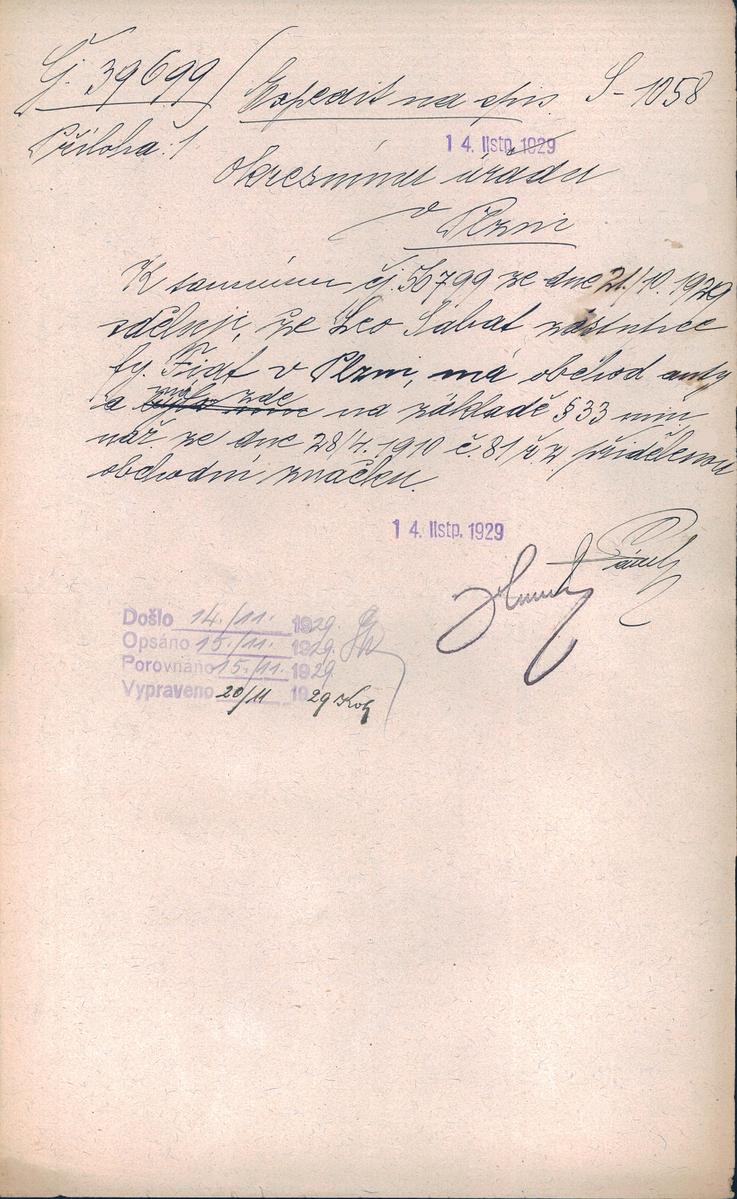 Čj. 39699/ Expedit na spis. S-1058
Příloha: 1
14. listp. 1929
Okresnímu úřadu
v Plzni
K tamnímu čj. 56799 ze dne 21./10. 1929
sděluji, že Leo Sabat zástupce
fy. Fiat v Plzni, má obchod auty
a má zde na základě § 33 min.
nař. ze dne 28/4. 1910 č. 81 ř. z. přidělenou
obchodní značku.
14. listp. 1929
Došlo 14./11. 1929.
Opsáno 15./11. 1929.
Porovnáno 15./11. 1929.
Vypraveno 20/11 1929